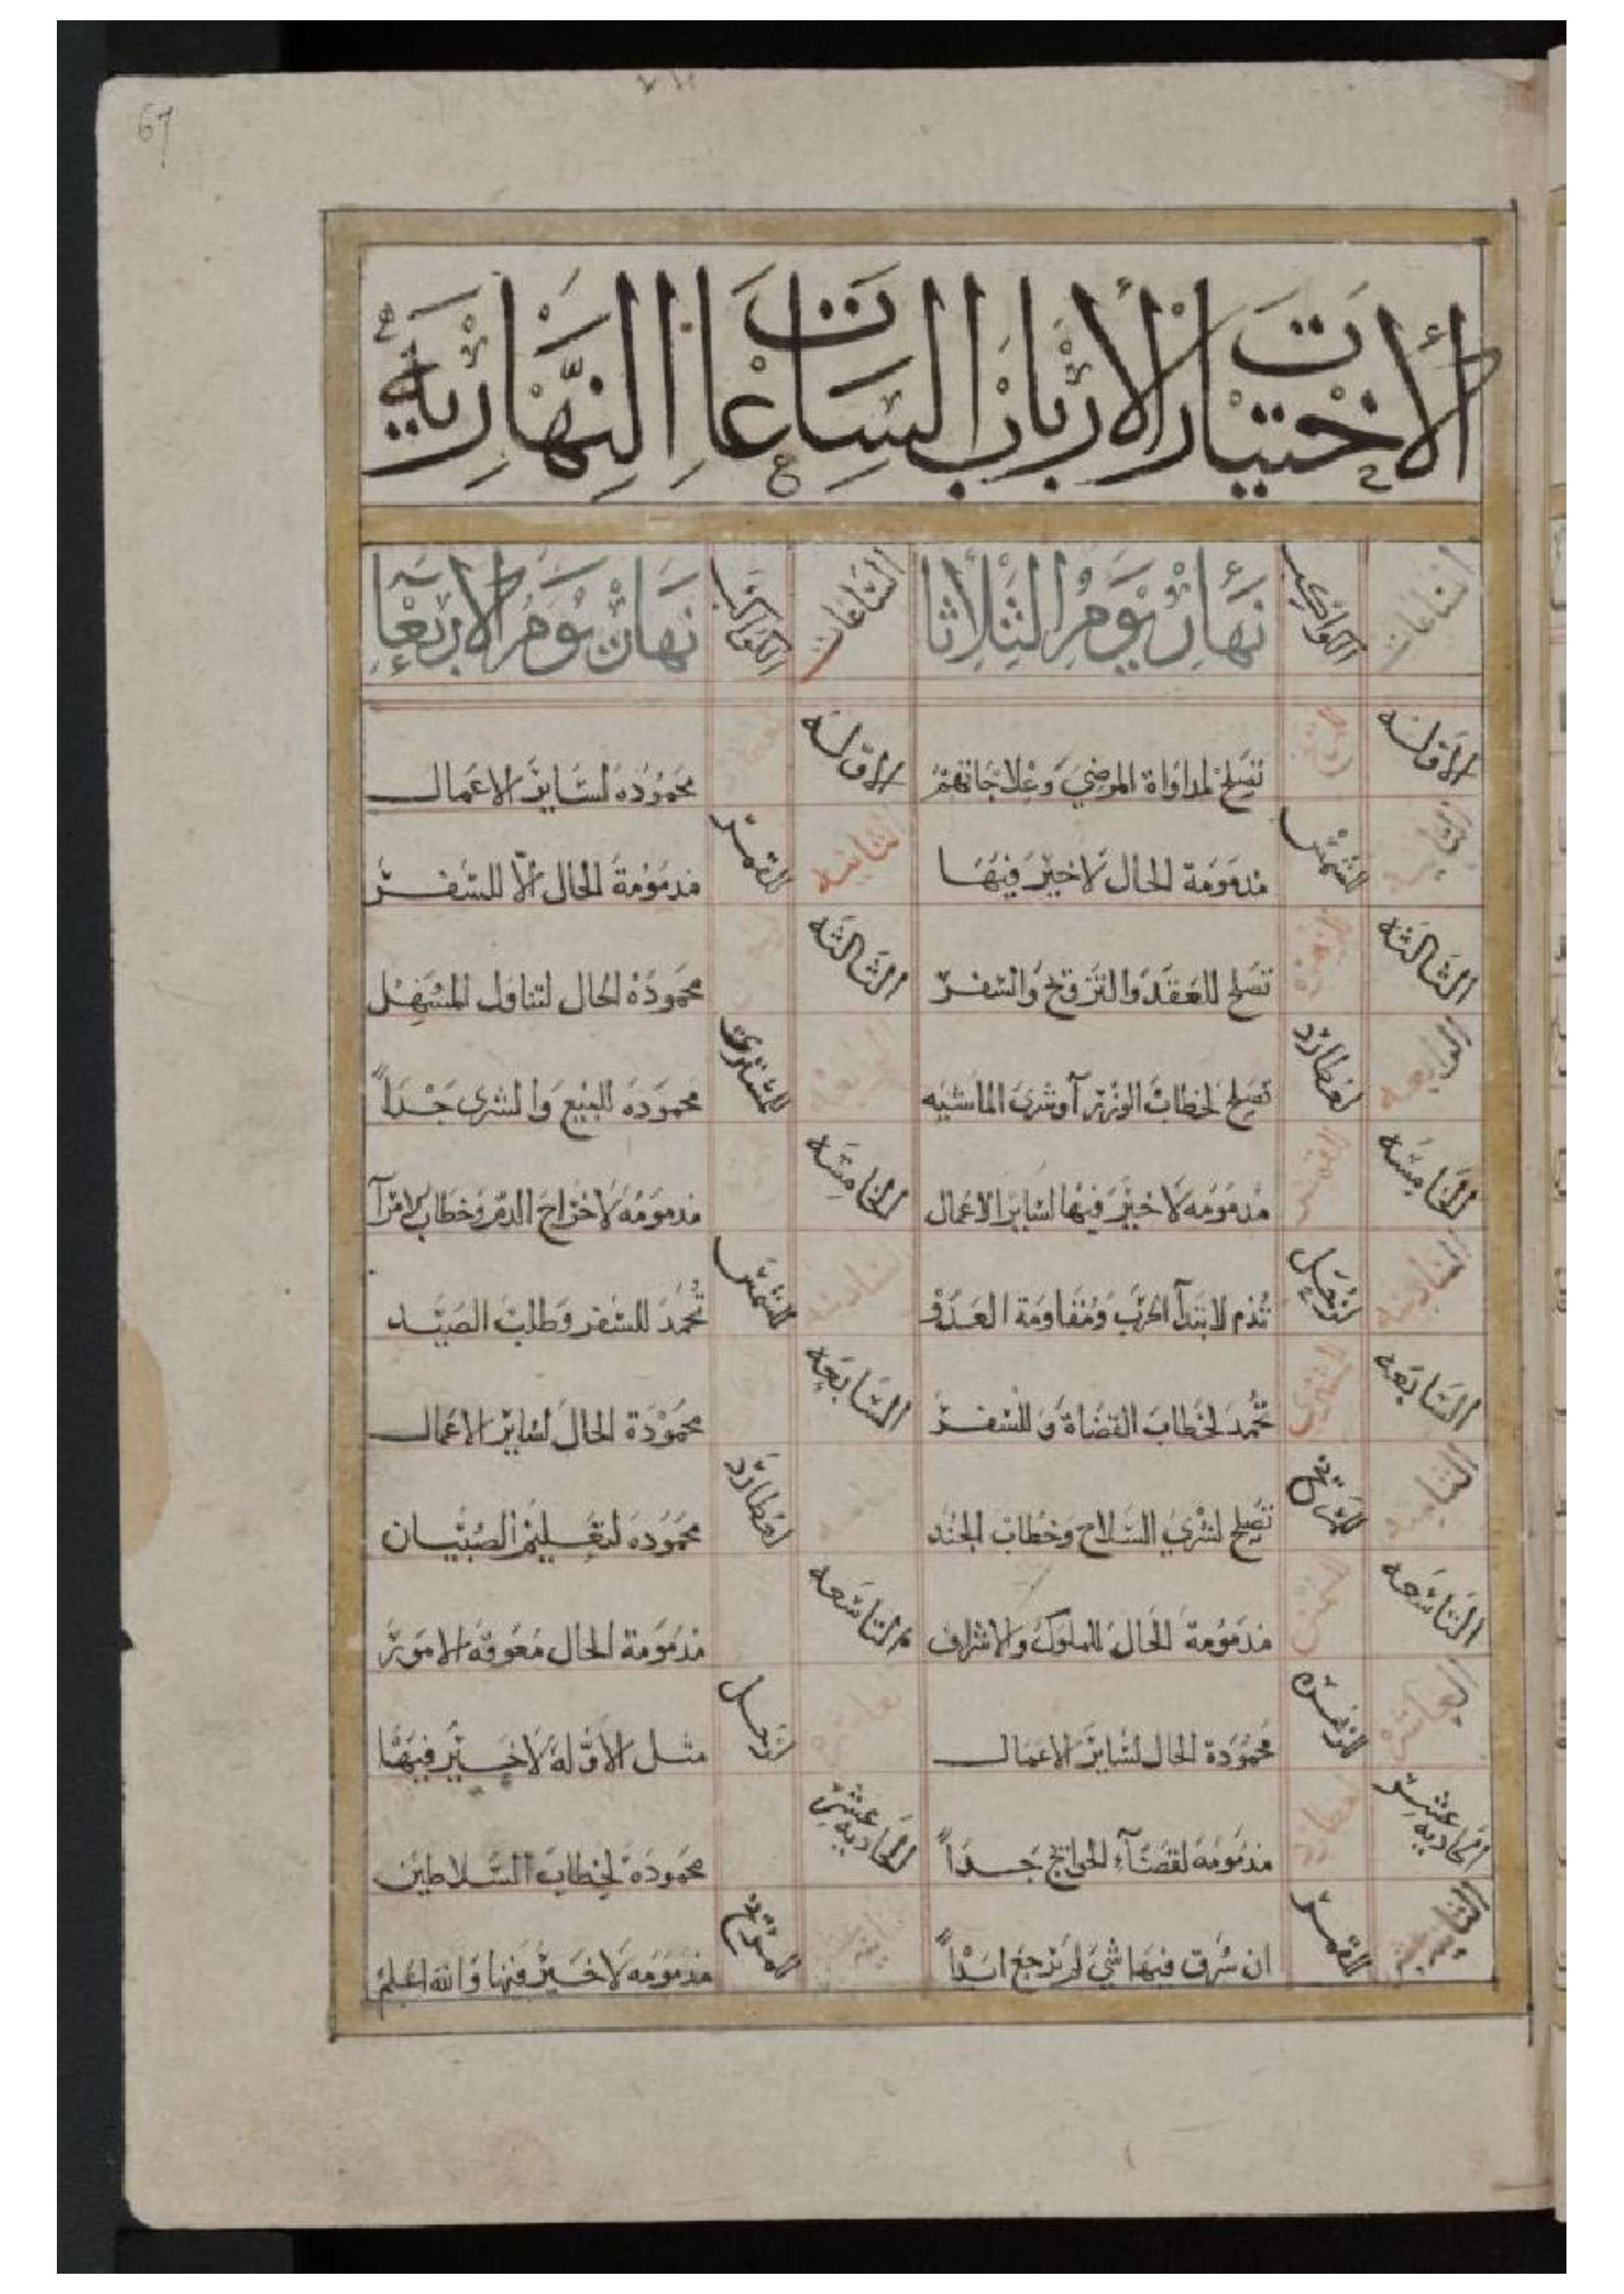 67
الاختيارات لارباب الساعات النهارية
الساعات الكواكب نهار يوم الثلاثا الساعات الكواكب نهار يوم الاربعآ
الاوله المريخ تصلح لمداواة المرضى وعلاجاتهم الاوله عطارد محموده لساير الاعمال
الثانيه الشمس مذمومة الحال لا خير فيها الثانيه القمر مذمومة الحال الا للسفر
الثالثه الزهره تصلح للعقد والتزوج والسفر الثالثه محمودة الحال لتناول المسهل
الرابعه عطارد تصلح لخطاب الوزرآ وشرى الماشيه الرابعه المشترى محموده للبيع والشرى جداً
الخامسه القمر مذمومه لا خير فيها لساير الاعمال الخامسه مذمومه لاخراج الدم وخطاب الامرآ
السادسه زحل تذم لابتدآ الحرب ومقاومة العدو السادسه الشمس تحمد للسفر وطلب الصيد
السابعه المشترى تحمد لخطاب القضاة وللسفر السابعه محمودة الحال لساير الاعمال
الثامنه المريخ تصلح لشرى السلاح وخطاب الجند الثامنه عطارد محموده لتعليم الصبيان
التاسعه الشمس مذمومة الحال للملوك والاشراف التاسعه مذمومة الحال معوقة الامور
العاشره الزهره محمودة الحال لساير الاعمال العاشره زحل مثل الاوله لا خير فيها
الحاديه عشر عطارد مذمومه لقضآء الحوايج جداً الحاديه عشر محموده لخطاب السلاطين
الثانيه عشر القمر ان سرق فيها شي لم يرجع ابداً الثانيه عشر المريخ مذمومه لا خير فيها والله اعلم